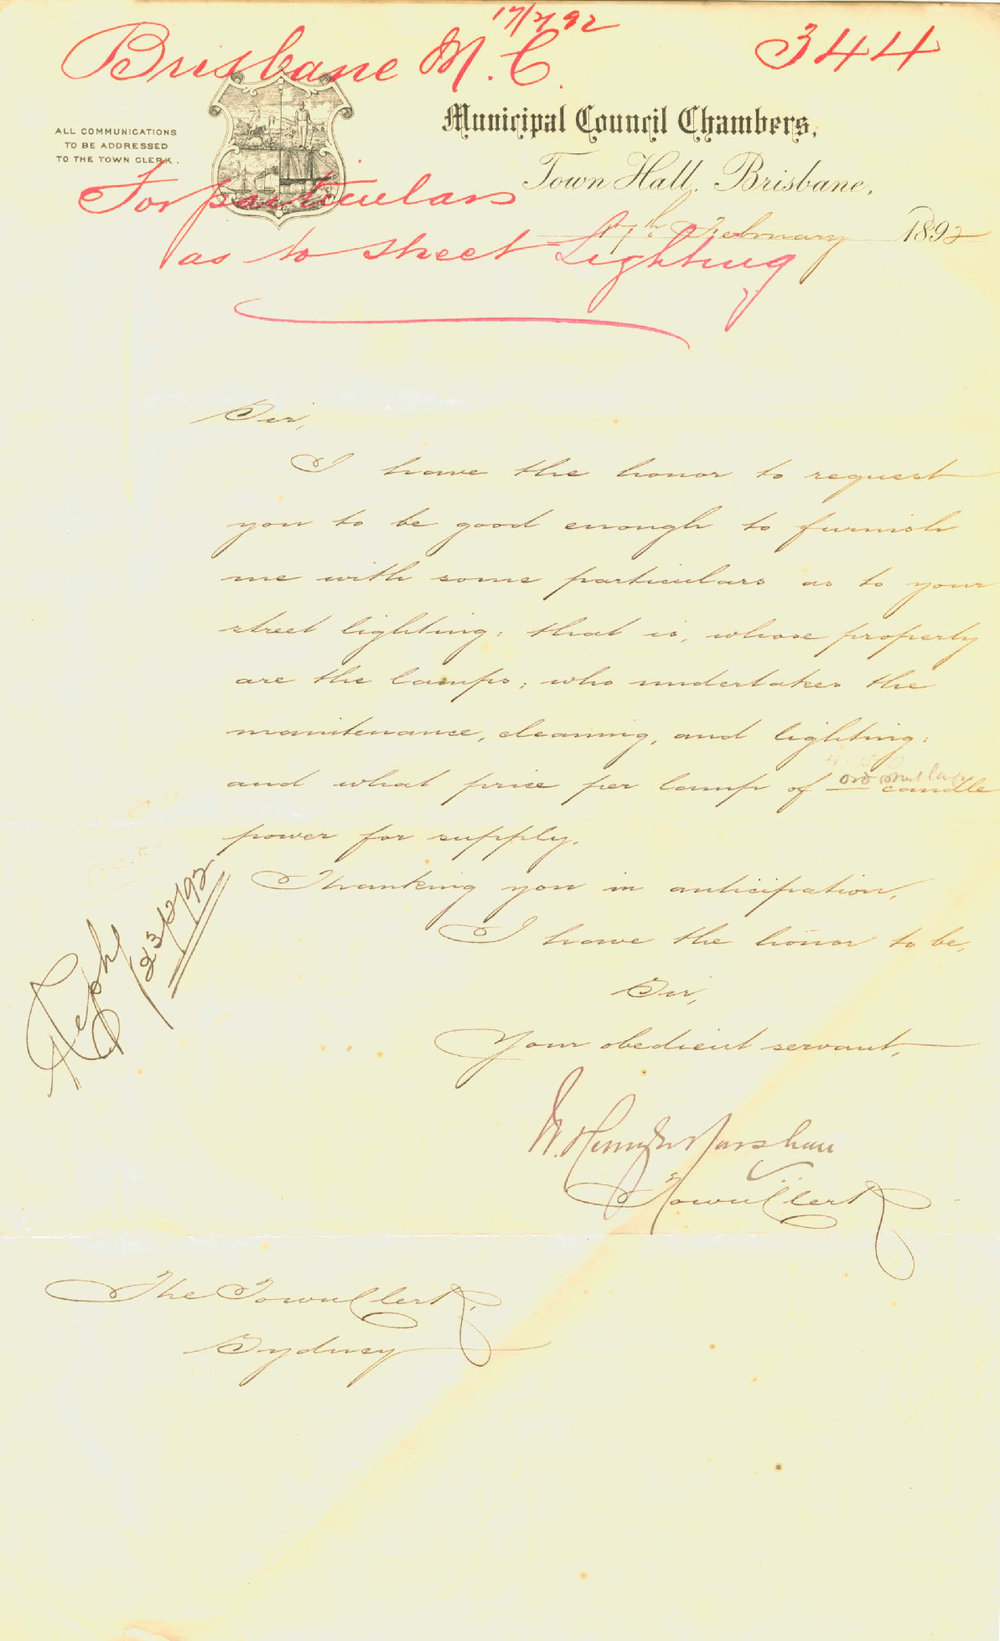 17/2/92
Brisbane M.C. 344
ALL COMMUNICATIONS
TO BE ADDRESSED
TO THE TOWN CLERK.
Municipal Council Chambers,
Town Hall, Brisbane,
17th February 1892
For particulars
as to street Lighting
Sir,
I have the honor to request
you to be good enough to furnish
me with some particulars as to your
street lighting: that is, whose property
are the lamps; who undertakes the
maintenance, cleaning, and lighting:
and what price per lamp of candle
power for supply.
Thanking you in anticipation,
I have the honor to be,
Sir,
Your obedient servant,
W. Henry G. Marshall
Town Clerk
Reply 23/2/92
The Town Clerk,
Sydney